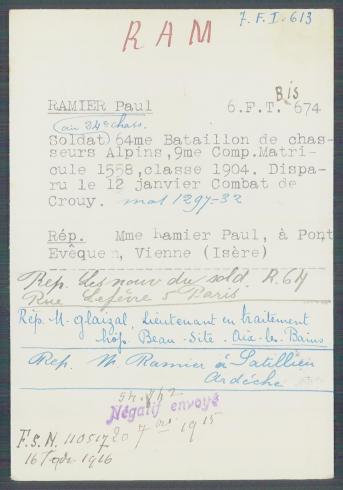 7. F. I. 613
R A M
Bis
RAMIER Paul 6.F.T. 674
au 24e chas.
Soldat 64me Bataillon de chas-
seurs Alpins, 9me Comp. Matri-
cule 1558, classe 1904. Dispa-
ru le 12 janvier Combat de
Crouy. mat 1297-32
Rép. Mme Ramier Paul, à Pont
Evêque n, Vienne (Isère)
Rép. Les nouv du sold. R. 64
Rue Lefèvre 5 Paris
Rép. M. Glaizal, Lieutenant en traitement
hôp. Beau-Site. Aix-les-Bains
Rép. M Ramier à Satillieu
Ardèche
Négatif envoyé
1915
F.S.N. 110517
1916